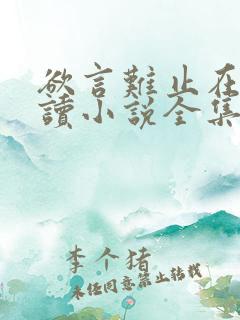 欲言難止在
讀小說全集
李个猪
未经同意禁止转载